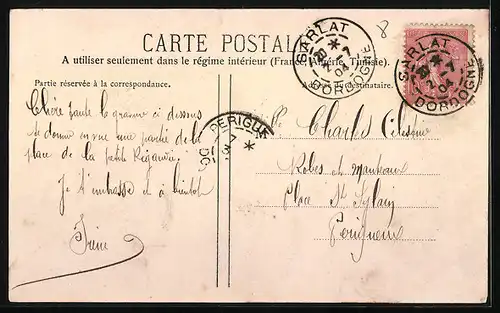 CARTE POSTALE
A utiliser seulement dans le régime intérieur (France, Algérie, Tunisie).
Partie réservée à la correspondance.
Adresse du destinataire.
8
SARLAT
20 *
2 - 7
04
DORDOGNE
SARLAT
20 *
7
04
DORDOGNE
PERIGUEUX
Chère tante la gravure ci dessous
te donne en vue une partie de la
place de la petite Rigaudie.
Je t'embrasse et à bientôt
Irène
Mlle Charles Célestine
Robes et Manteaux
Place St Sylain
Périgueux